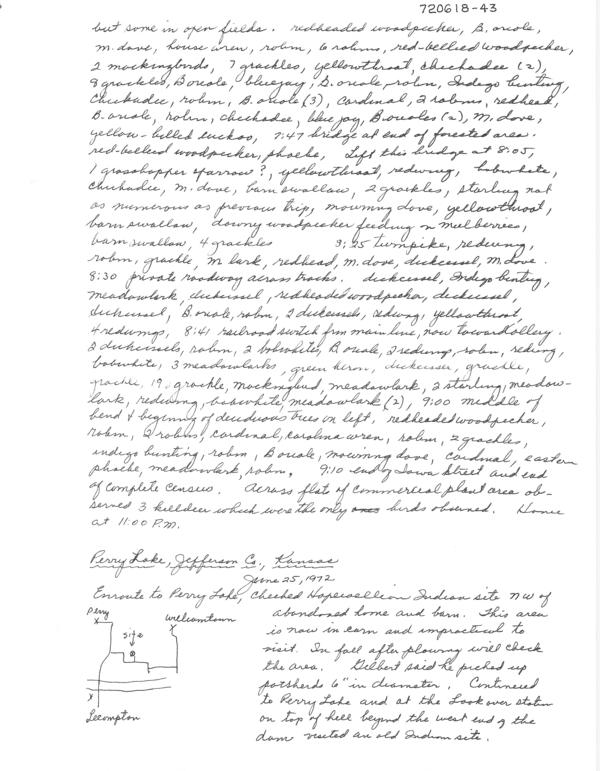 720618-43
but some in open fields. redheaded woodpecker, B. oriole,
m. dove, house wren, robin, 6 robins, red-bellied woodpecker,
2 mockingbirds, 7 grackles, yellowthroat, chickadee (2),
8 grackles, B oriole, bluejay, B. oriole, robin, Indigo bunting,
chickadee, robin, B. oriole (3), cardinal, 2 robins, redhead,
B. oriole, robin, chickadee, blue jay, B orioles (2), M. dove,
yellow-billed cuckoo, 7:47 bridge at end of forested area.
red-bellied woodpecker, phoebe, Left this bridge at 8:05,
1 grasshopper sparrow?, yellowthroat, redwing, bobwhite,
chickadee, m. dove, barn swallow, 2 grackles, starling not
as numerous as previous trip, mourning dove, yellowthroat,
barn swallow, downy woodpecker feeding on mulberries,
barn swallow, 4 grackles 8:25 turnpike, redwing,
robin, grackle, m lark, redhead, m. dove, dickcissel, m. dove.
8:30 private roadway across tracks. dickcissel, Indigo bunting,
meadowlark, dickcissel, redheaded woodpecker, dickcissel,
dickcissel, B. oriole, robin, 2 dickcissels, redwing, yellowthroat,
4 redwings, 8:41 railroad switch from mainline, now toward
2 dickcissels, robin, 2 bobwhites, B oriole, 2 redwings, robin, redwing,
bobwhite, 3 meadowlarks, green heron, dickcissel, grackle,
grackle, 19 grackle, mockingbird, meadowlark, 2 starling, meadow-
lark, redwing, bobwhite, meadowlark (2), 9:00 middle of
bend & beginning of deciduous trees on left, redheaded woodpecker,
robin, 2 robins, cardinal, carolina wren, robin, 2 grackles,
indigo bunting, robin, B oriole, mourning dove, cardinal, eastern
phoebe, meadowlark, robin, 9:10 end of Iowa Street and end
of complete census. Across flats of commercial plant area ob-
served 3 killdeer which were the only birds observed. Home
at 11:00 P.M.
Perry Lake, Jefferson Co., Kansas
June 25, 1972
Enroute to Perry Lake, checked Hopewellian Indian site NW of
abandoned home and barn. This area
is now in corn and impractical to
visit. In fall after plowing will check
the area. Gilbert said he picked up
potsherds 6" in diameter. Continued
to Perry Lake and at the Lookover station
on top of hill beyond the west end of the
dam visited an old Indian site.
Perry
X
Williamstown
X
site
X
Lecompton